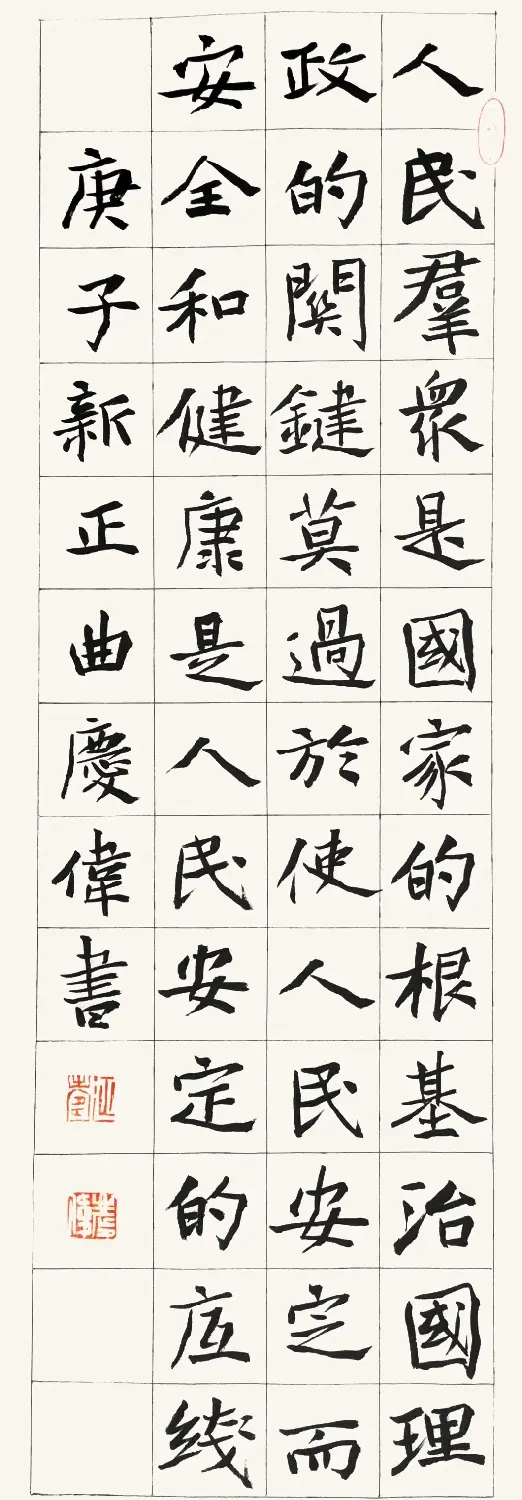 人民羣衆是國家的根基治國理
政的関鍵莫過於使人民安定而
安全和健康是人民安定的底线
庚子新正曲慶偉書